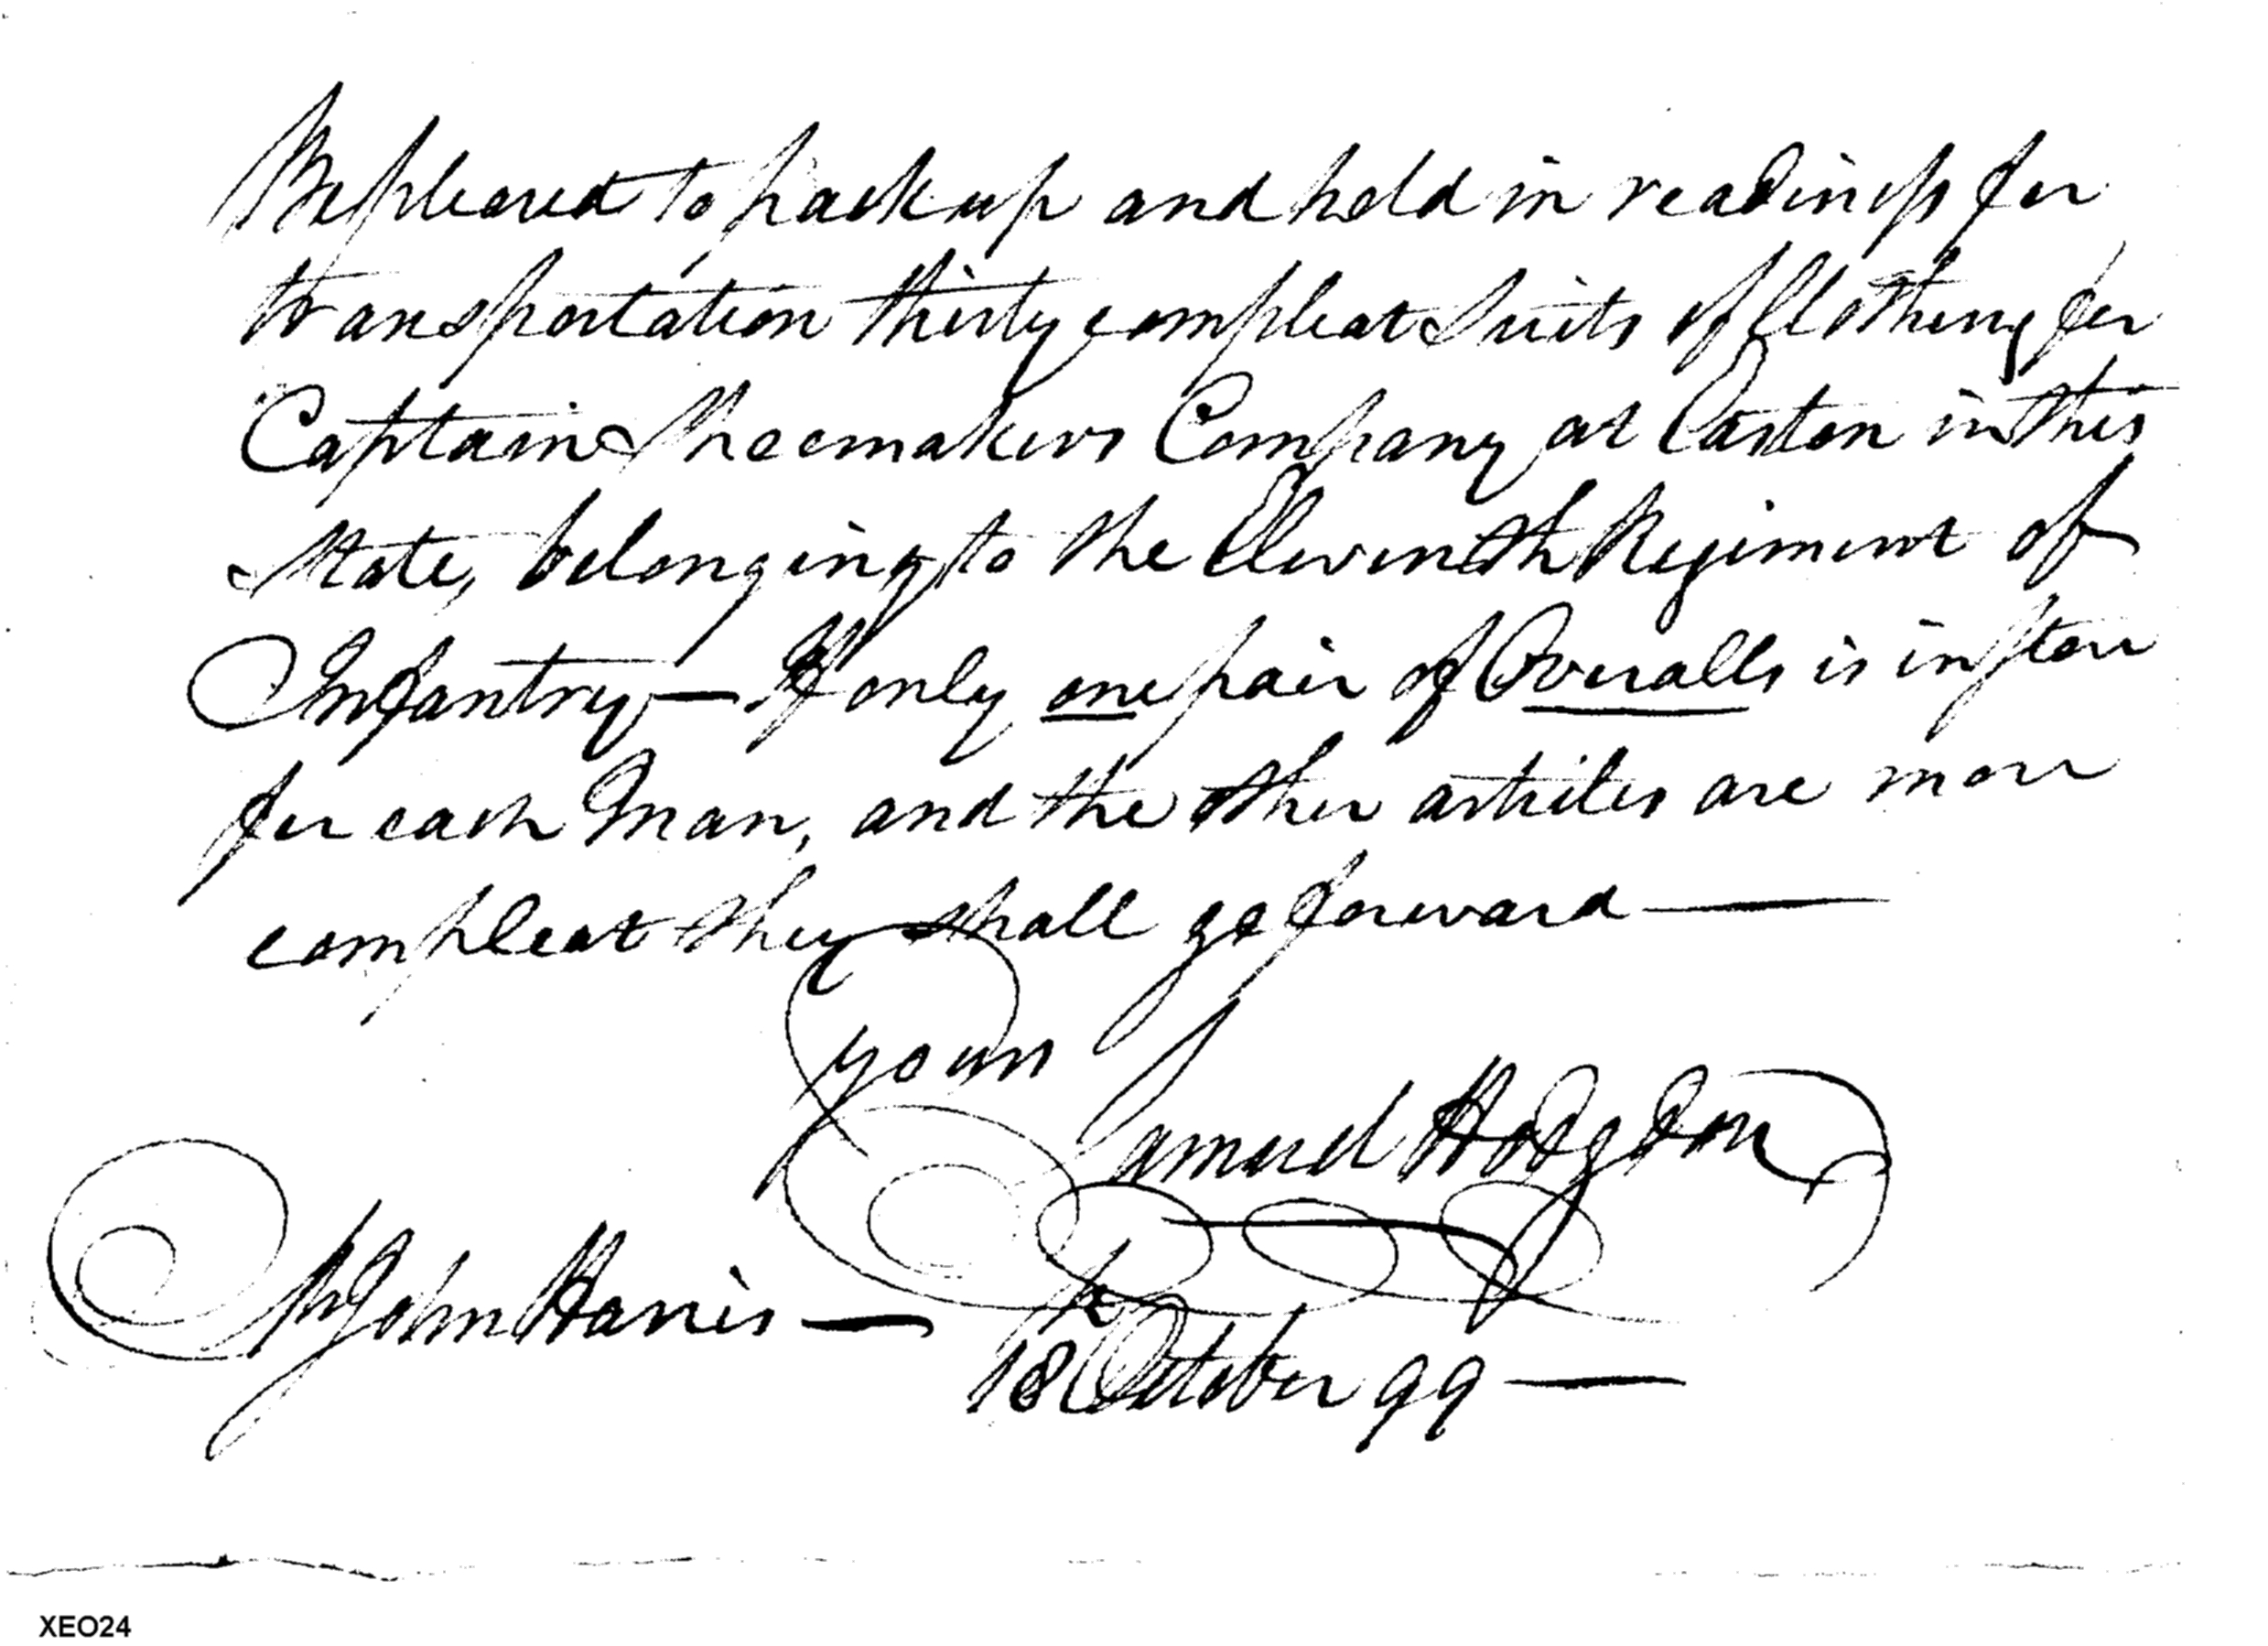 Be pleased to pack up and hold in readiness for
transportation thirty compleat Suits of Clothing for
Captain Shoemakers Company at Easton in this
State, belonging to the Eleventh Regiment of
Infantry — If only one pair of Overalls is in store
for each Man, and the other articles are more
compleat they shall go forward —
yours
Samuel Hodgdon
Mr John Harris —
18 October 99 —
XEO24